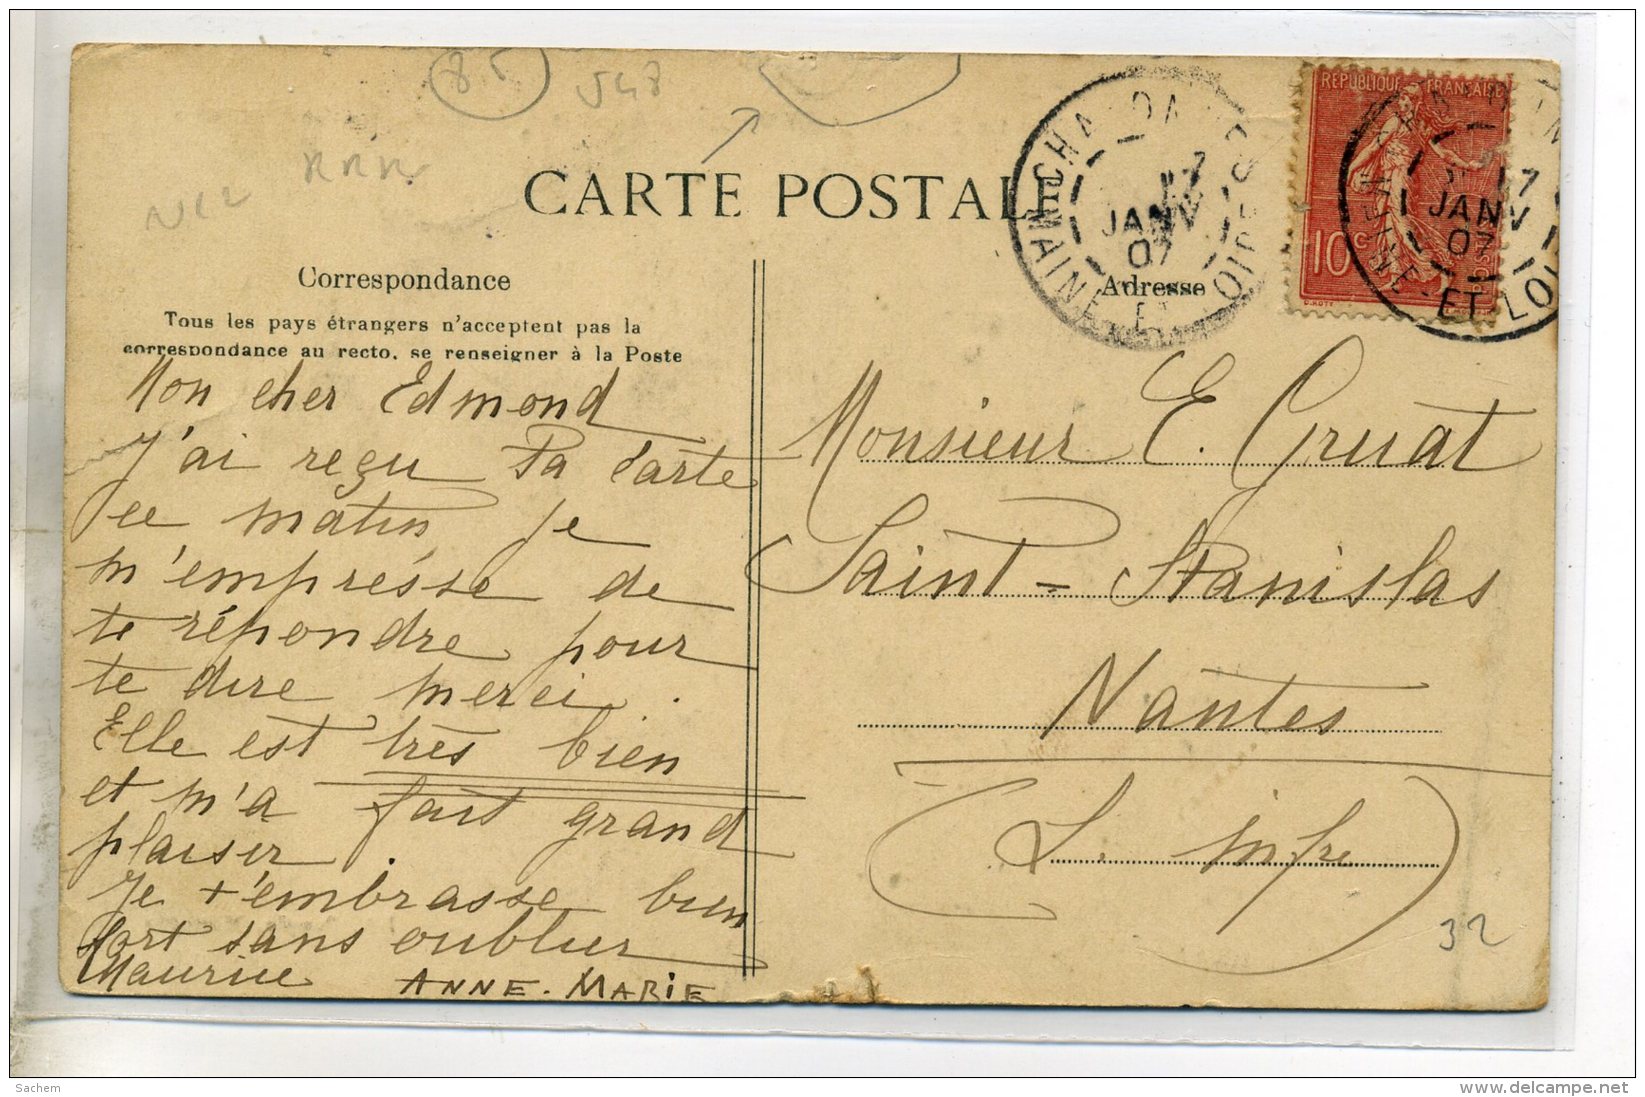 85
548
RRR
CARTE POSTALE
Correspondance
Tous les pays étrangers n'acceptent pas la
correspondance au recto, se renseigner à la Poste
Adresse
RÉPUBLIQUE FRANÇAISE
10 c
POSTES
17
JANV
07
MAINE ET LOIRE
17
JANV
07
MAINE-ET-LOI
Mon cher Edmond
J'ai reçu Ta Carte
ce matin, je
m'empresse de
te répondre pour
te dire merci.
Elle est très bien
et m'a fait grand
plaisir.
Je t'embrasse bien
fort sans oublier
Maurice
ANNE-MARIE
Monsieur E. Gruat
Saint-Stanislas
Nantes
(L. infre)
32
Sachem
delcampe.net